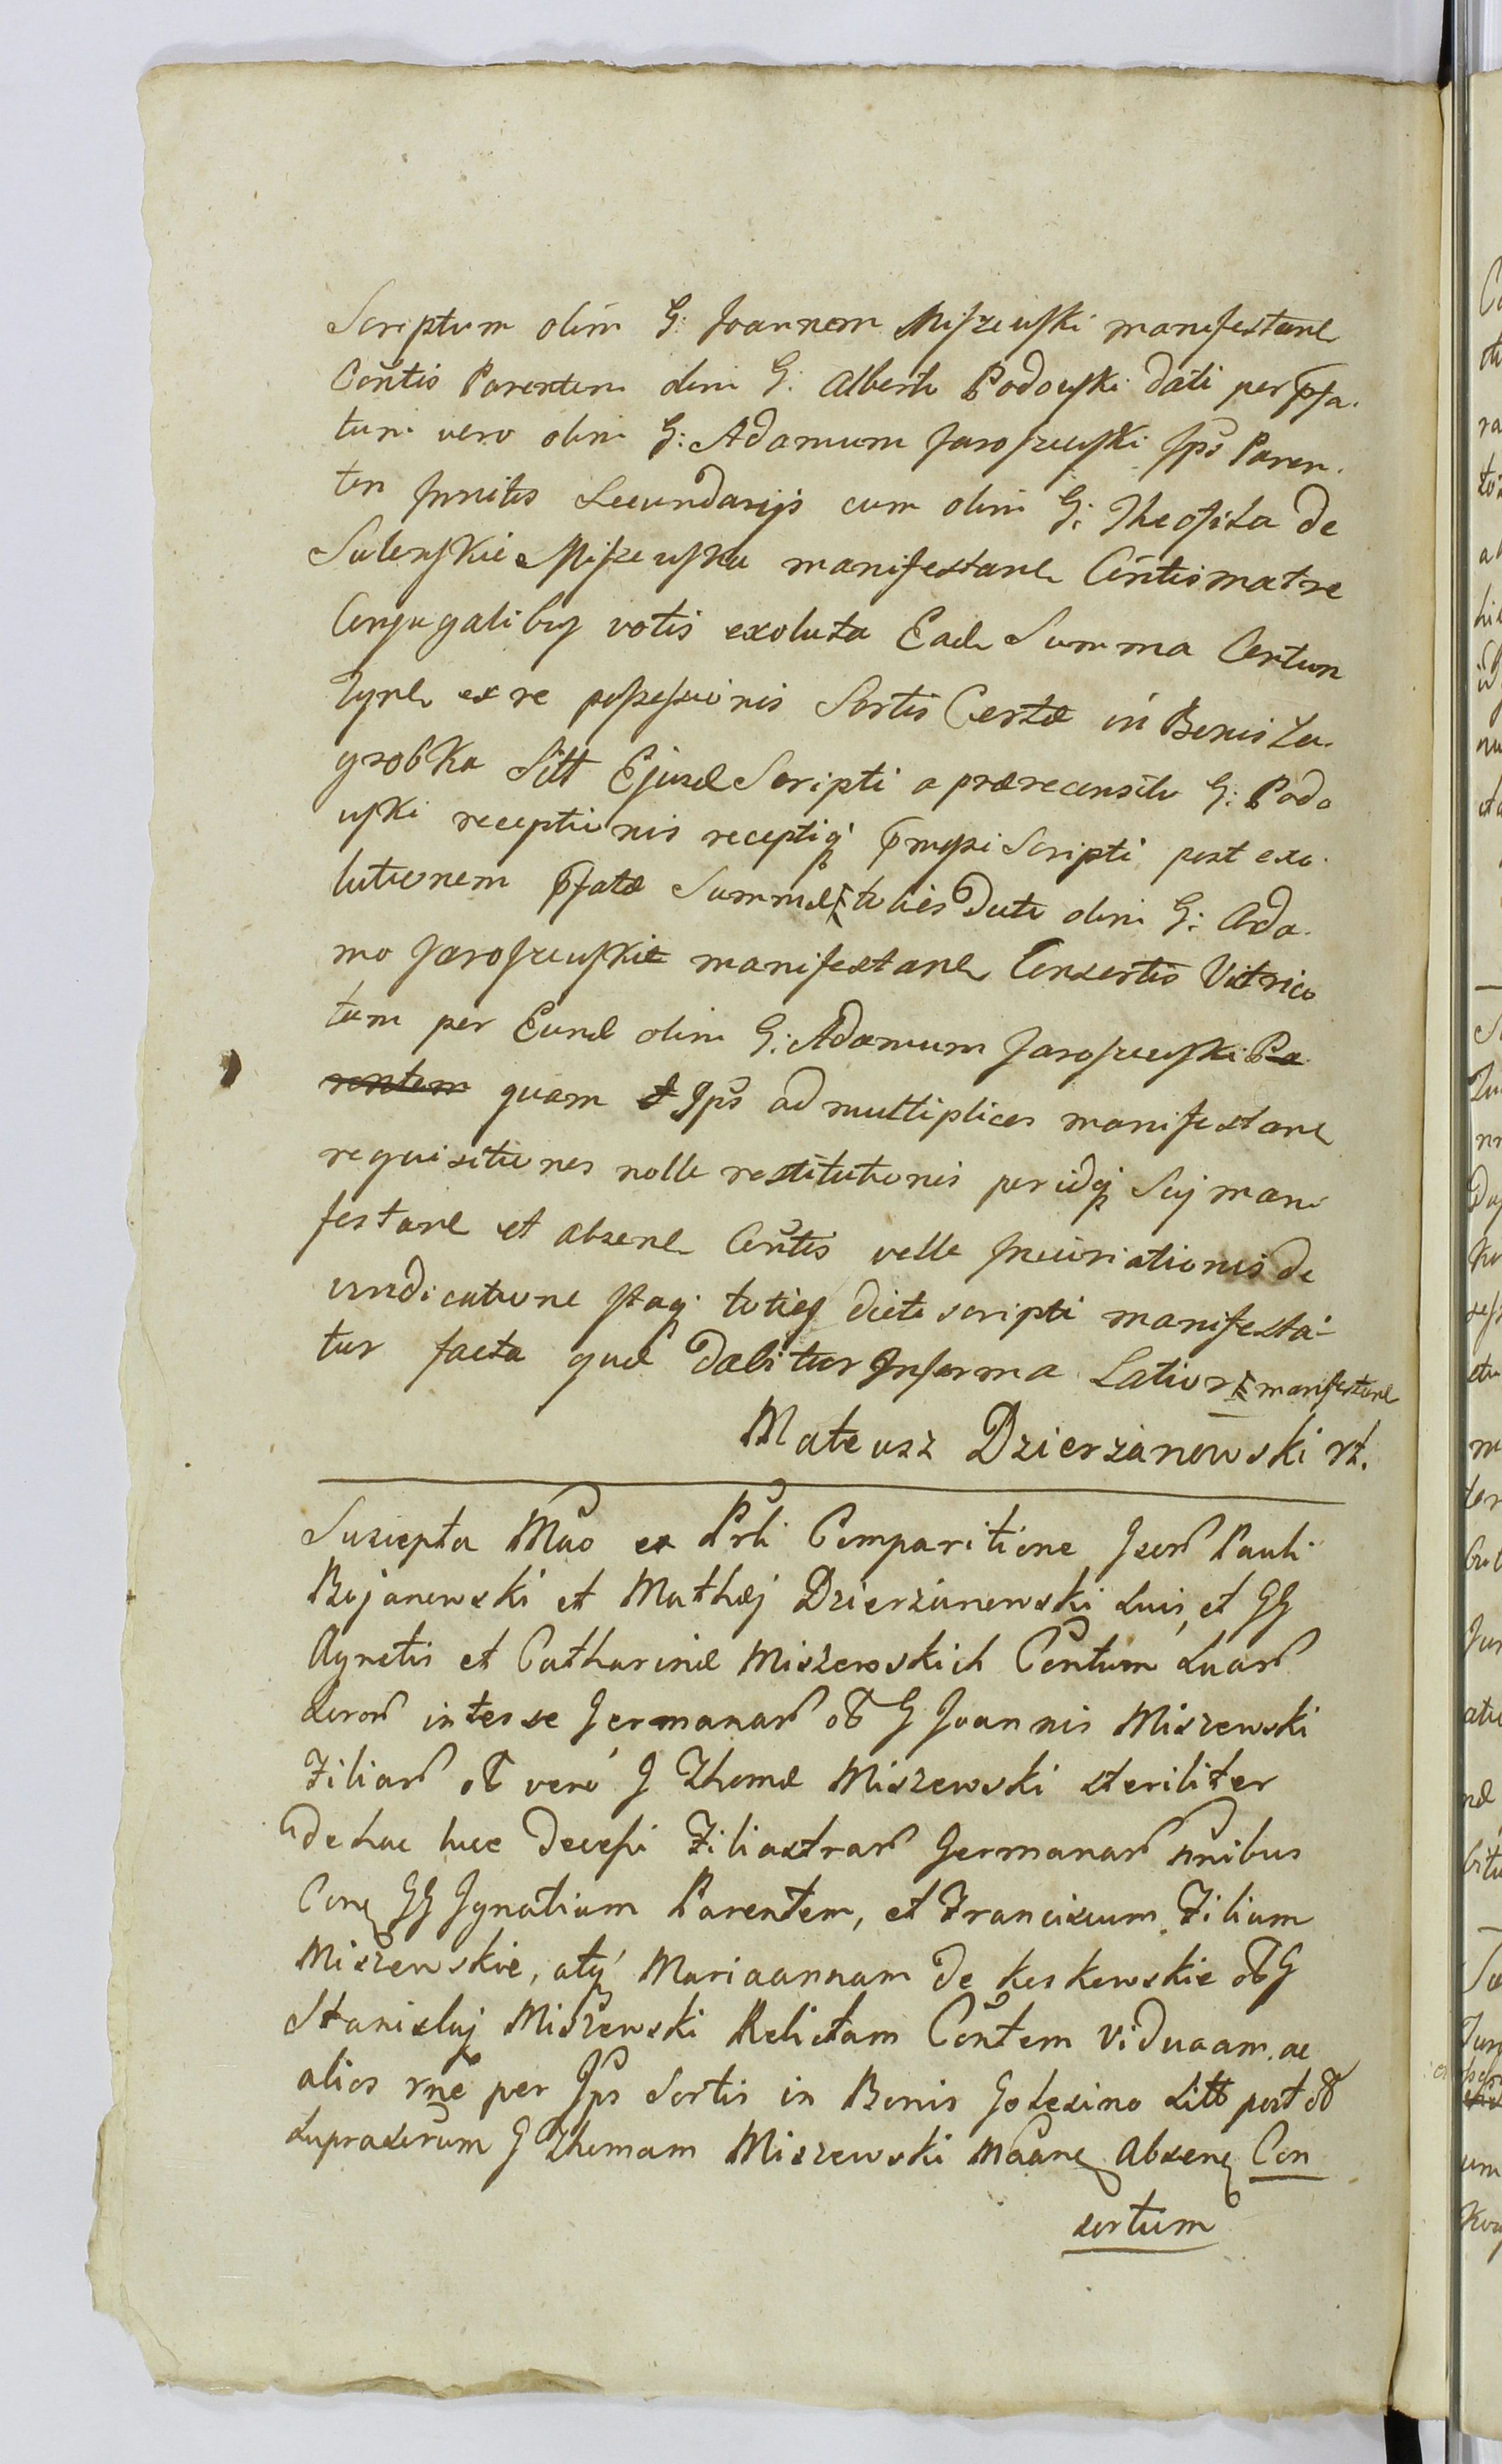 Scriptum olim G: Joannem Miszewski manifestane
Contis Parentem olim G: Alberti Podowski dati per pfa.
tum vero olim G: Adamum Jaroszewski Ips Paren.
tem Innitis Secundarijs cum olim G: Theofila de
Sulenskie Miszewska manifestane Contis matre
Conjugalibus votis exoluta Eade Summa Certum
Tyne ex re possessionis Sortis Certæ in Bonis Za.
grobka Sitt Ejusd Scripti a prærecensito G: Podo
wski receptionis receptiq pmssi Scripti post exo.
lutionem pfatæ Summæ toties dicto olim G: Ada.
mo Jaroszewskie manifestane Consortis Vitrico
tam per Eund olim G: Adamum Jaroszewski Pa
rentem quam et Ips ad multiplices manifestane
requisitiones nolle restitutionis peridq Suj mani
festane et absene Contis velle
vindicatione Itaq toties dicti scripti manifesta-
tur facta quæ dabitur Informa Latiori manifestane
Mateusz Dzierzanowski rt.
Suscepta Mão ex Prli Comparitione Gsor Pauli
Bojanowski et Mathæj Dzierzanowski suis, et GG
Agnetis et Catharinæ Miszewskich Contum suar
soror inter se Germanar ol G Joannis Miszewski
Filiar ol vero G Thomæ Miszewski steriliter
de hac luce decessi Filiastrar Germanar nnibus
Conq GG Ignatium Parentem, et Franciscum Filium
Miszewskie, atq Mariaannam de Keskowskie ol G
Stanislaj Miszewski Relictam Contem Viduaam. ac
alios rne per Ips Sortis in Bonis Golesino Sitt post ol
suprascrum G Thomam Miszewski Mãane Absene Con
sortum